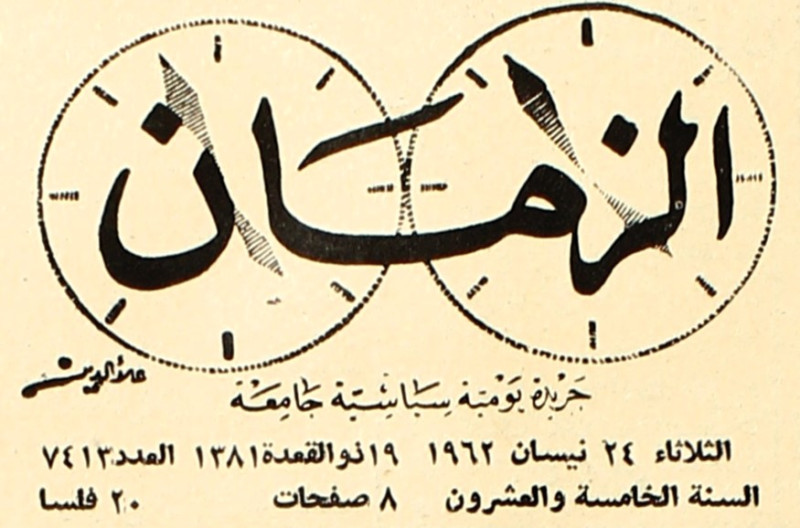 الزمان
علاء الدين
جريدة يومية سياسية جامعة
الثلاثاء ٢٤ نيسان ١٩٦٢ ١٩ ذو القعدة ١٣٨١ العدد ٧٤١٣
السنة الخامسة والعشرون ٨ صفحات ٢٠ فلسا